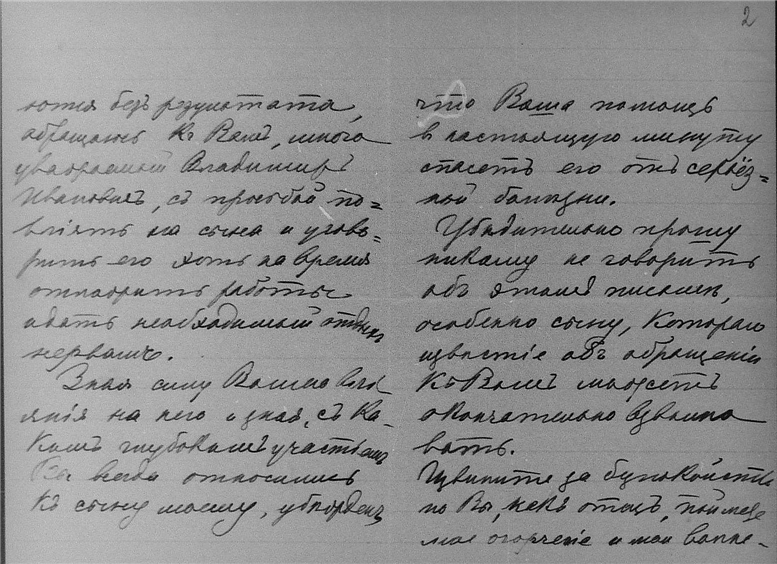 2
ются безъ результата,
обращаюсь къ Вамъ, много
уважаемый Владимиръ
Ивановичъ, съ просьбой по=
вліять на сына и угово=
рить его хоть на время
отложить работы
и дать необходимый отдыхъ
нервамъ.
Зная силу Вашего влі
янія на него и зная, съ ка-
кимъ глубокимъ участіемъ
Вы всегда относились
къ сыну моему, убѣжденъ,
что Ваша помощь
в настоящую минуту
спасетъ его отъ серьёз=
ной болѣзни.
Убѣдительно прошу
никому не говорить
объ этомъ письмѣ,
особенно сыну, котораго
извѣстіе объ обращеніи
къ Вамъ можетъ
окончательно взволно
вать.
Извините за безпокойство
но Вы, какъ отецъ, поймете
мое огорченіе и мои волне-